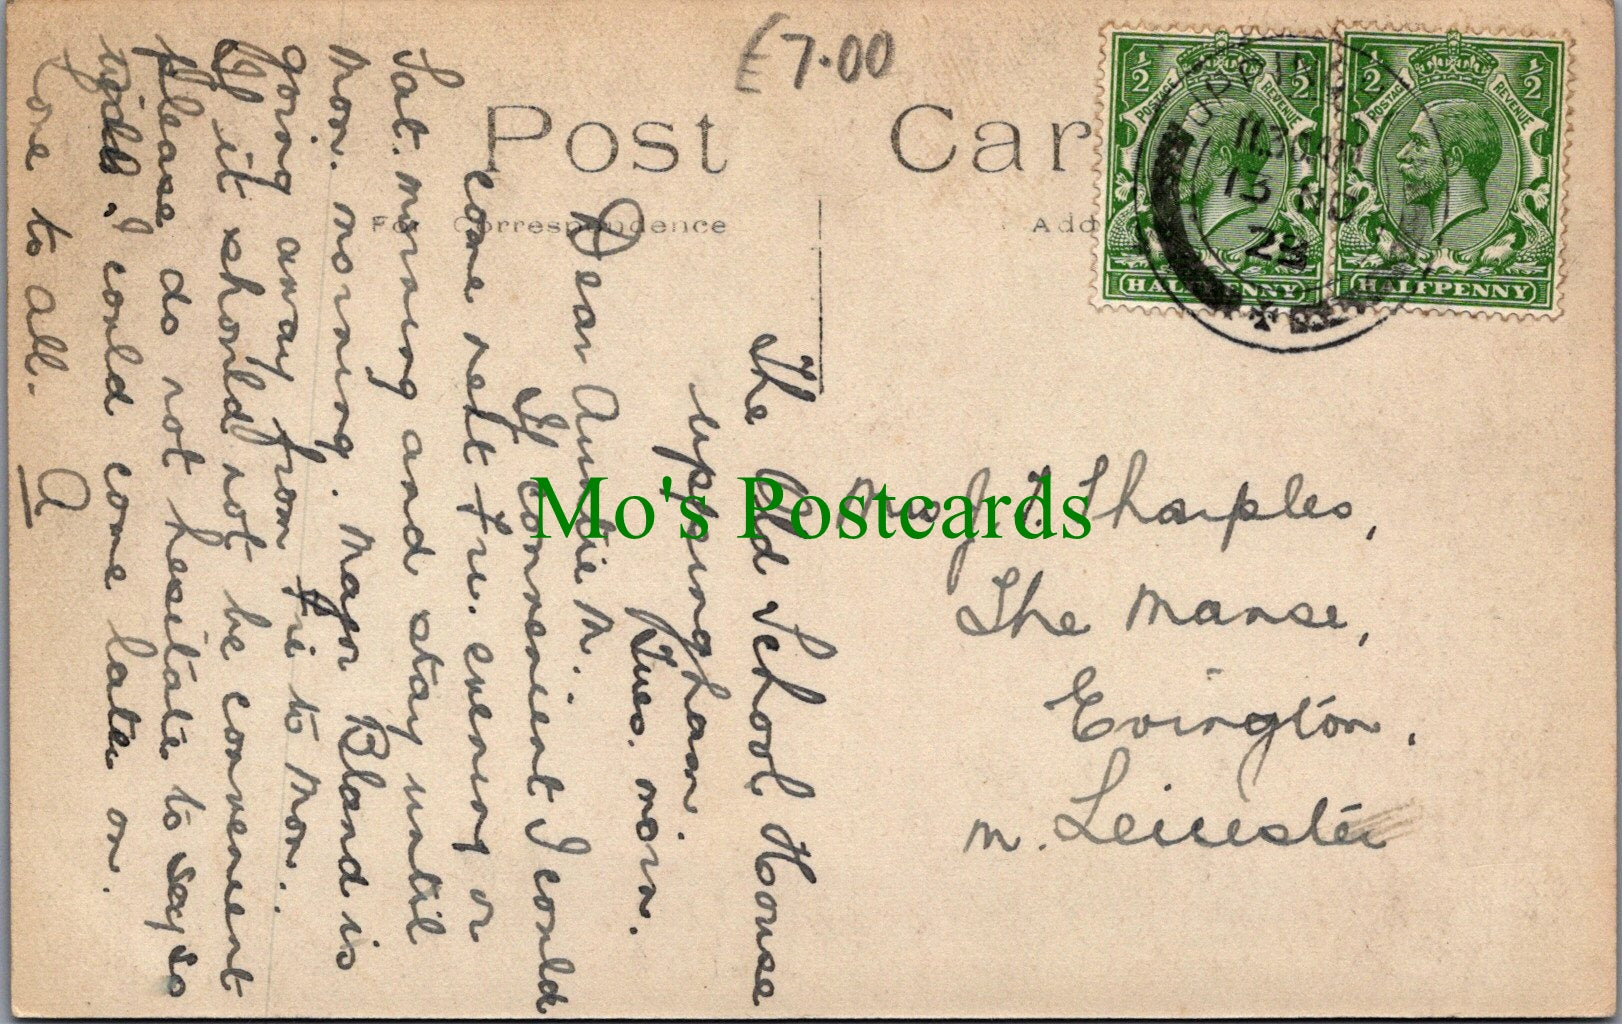 £7.00
Post Card
For Correspondence
Add
½ ½
POSTAGE REVENUE
HALFPENNY
½ ½
POSTAGE REVENUE
HALFPENNY
UPPINGHAM
11.30 AM
13
28
The Old School House
Uppingham
Tues. morn.
Dear Auntie M.
If convenient I could
come next Fri. evening or
Sat. morning and stay until
Mon. morning. Major Bland is
going away from Fri to Mon.
If it should not be convenient
please do not hesitate to say so
I could come later on.
Love to all.
A
Mrs J. T. Tharples,
The Manse,
Evington,
nr. Leicester
Mo's Postcards